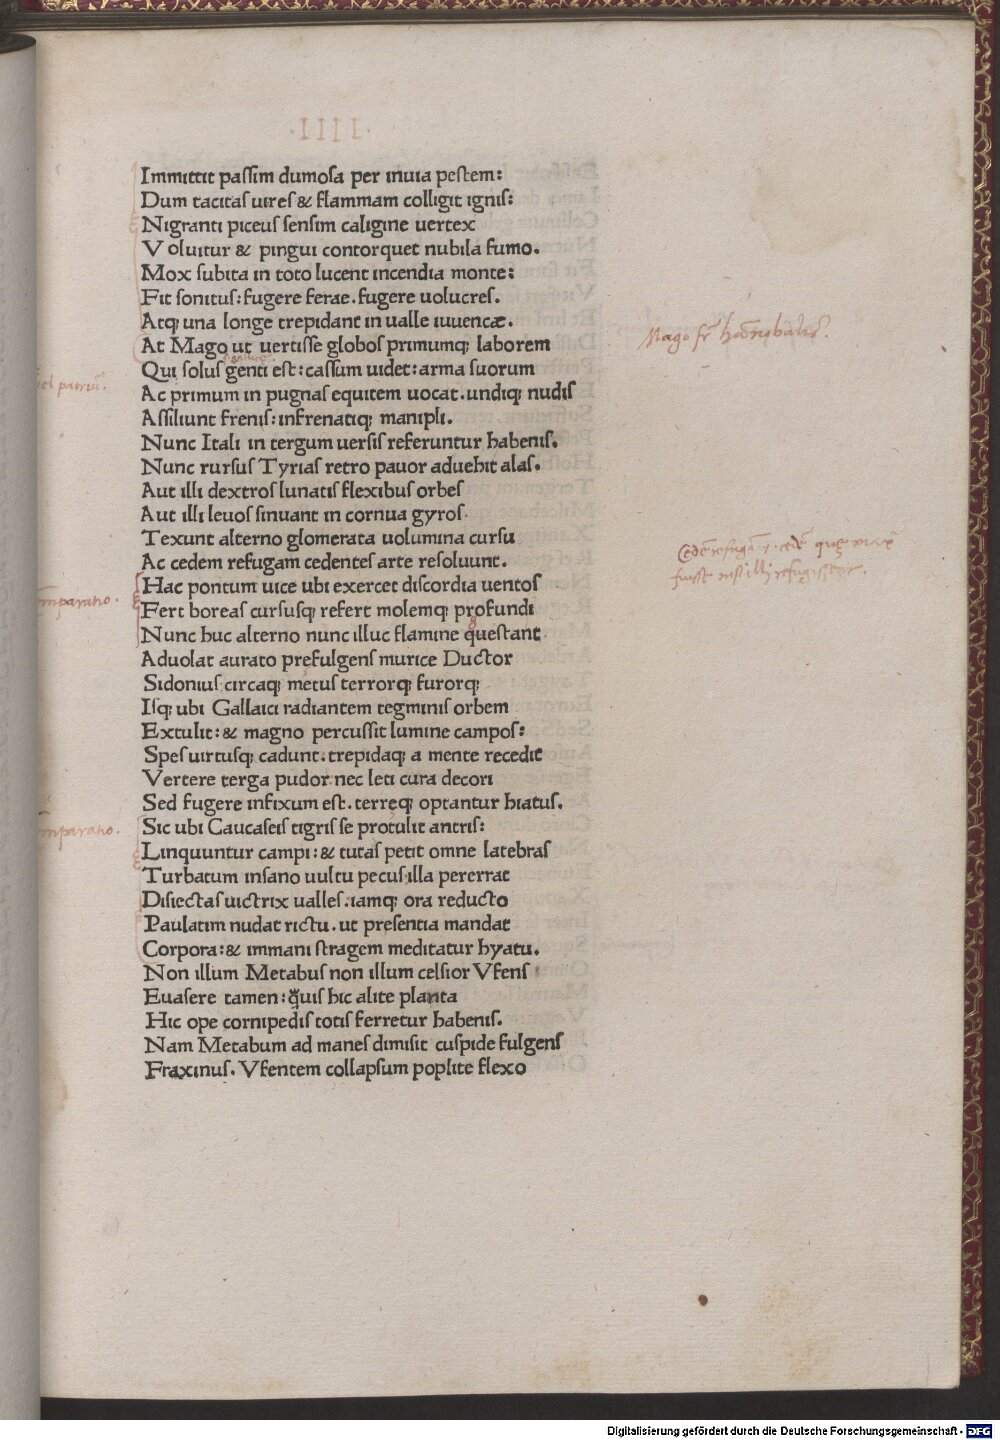 ·IIII·
Immittit paſſim dumoſa per inuia peſtem:
Dum tacitaſ uireſ & flammam colligit igniſ:
Nigranti piceuſ ſenſim caligine uertex
Voluitur & pingui contorquet nubila fumo.
Mox ſubita in toto lucent incendia monte:
Fit ſonituſ: fugere ferae. fugere uolucreſ.
Atq; una longe trepidant in ualle iuuencæ.
At Mago ut uertiſſe globoſ primumq; laborem
Qui ſoluſ genti eſt: caſſum uidet: arma ſuorum
Ac primum in pugnaſ equitem uocat. undiq; nudiſ
Aſſiliunt freniſ: infrenatiq; manipli.
Nunc Itali in tergum uerſiſ referuntur habeniſ.
Nunc rurſuſ Tyriaſ retro pauor aduehit alaſ.
Aut illi dextroſ lunatiſ flexibuſ orbeſ
Aut illi leuoſ ſinuant in cornua gyroſ.
Texunt alterno glomerata uolumina curſu
Ac cedem refugam cedenteſ arte reſoluunt.
Hac pontum uice ubi exercet diſcordia uentoſ
Fert boreaſ curſuſq; refert molemq; profundi
Nunc huc alterno nunc illuc flamine queſtant
Aduolat aurato prefulgenſ murice Ductor
Sidoniuſ circaq; metuſ terrorq; furorq;
Iſq; ubi Gallaici radiantem tegminiſ orbem
Extulit: & magno percuſſit lumine campoſ:
Speſ uirtuſq; cadunt. trepidaq; a mente recedit
Vertere terga pudor nec leti cura decori
Sed fugere infixum eſt. terreq; optantur hiatuſ.
Sic ubi Caucaſeiſ tigriſ ſe protulit antriſ:
Linquuntur campi: & tutaſ petit omne latebraſ
Turbatum inſano uultu pecuſ illa pererrat
Diſiectaſ uictrix ualleſ. iamq; ora reducto
Paulatim nudat rictu. ut preſentia mandat
Corpora: & immani ſtragem meditatur hyatu.
Non illum Metabuſ non illum celſior Vfenſ
Euaſere tamen: q̃uiſ hic alite planta
Hic ope cornipediſ totiſ ferretur habeniſ.
Nam Metabum ad maneſ dimiſit cuſpide fulgenſ
Fraxinuſ. Vfentem collapſum poplite flexo
mparatio.
mparatio.
Digitalisierung gefördert durch die Deutsche Forschungsgemeinschaft - DFG